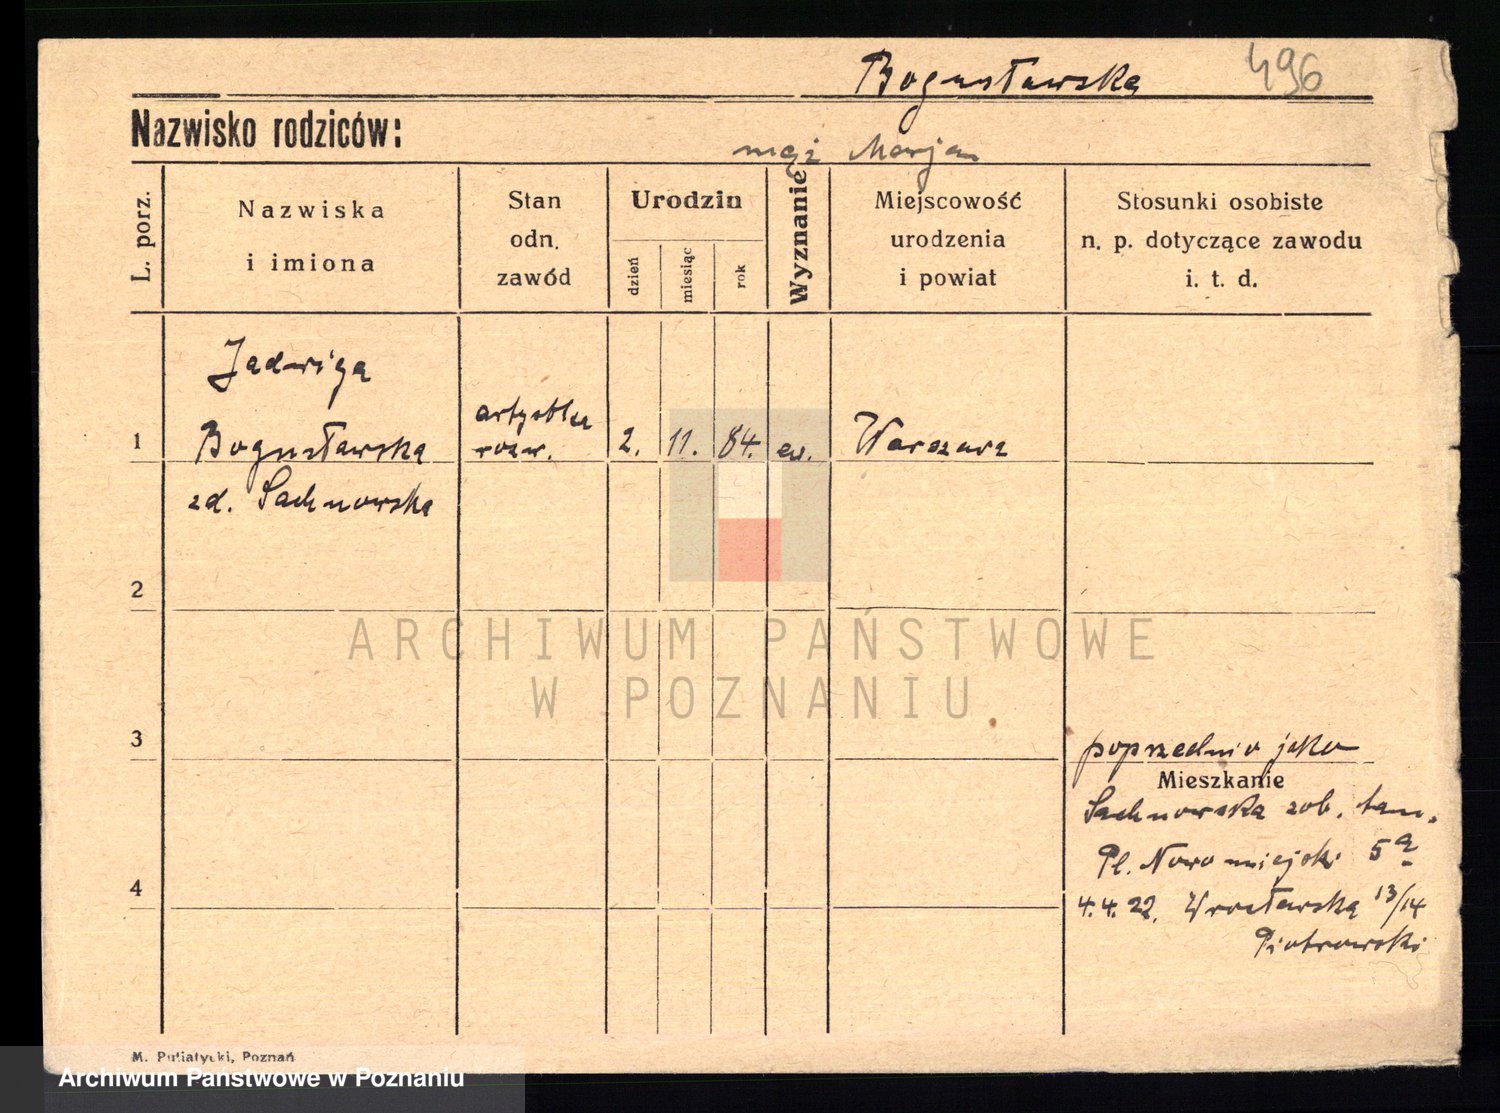 Bogusławska 496
Nazwisko rodziców:
mąż Marjan
L. porz.
Nazwiska
i imiona
Stan
odn.
zawód
Urodzin
dzień
miesiąc
rok
Wyznanie
Miejscowość
urodzenia
i powiat
Stosunki osobiste
n. p. dotyczące zawodu
i. t. d.
Jadwiga
artystka
1 Bogusławska rozw. 2. 11. 84. ew. Warszawa
zd. Sachnowska
2
ARCHIWUM PAŃSTWOWE
W POZNANIU
3
poprzednio jako
Mieszkanie
Sachnowska zob. tam.
Pl. Nowomiejski 5a
4
4.4.22. Wrocławska 13/14
Piotrowski
M. Putiatycki, Poznań
Archiwum Państwowe w Poznaniu